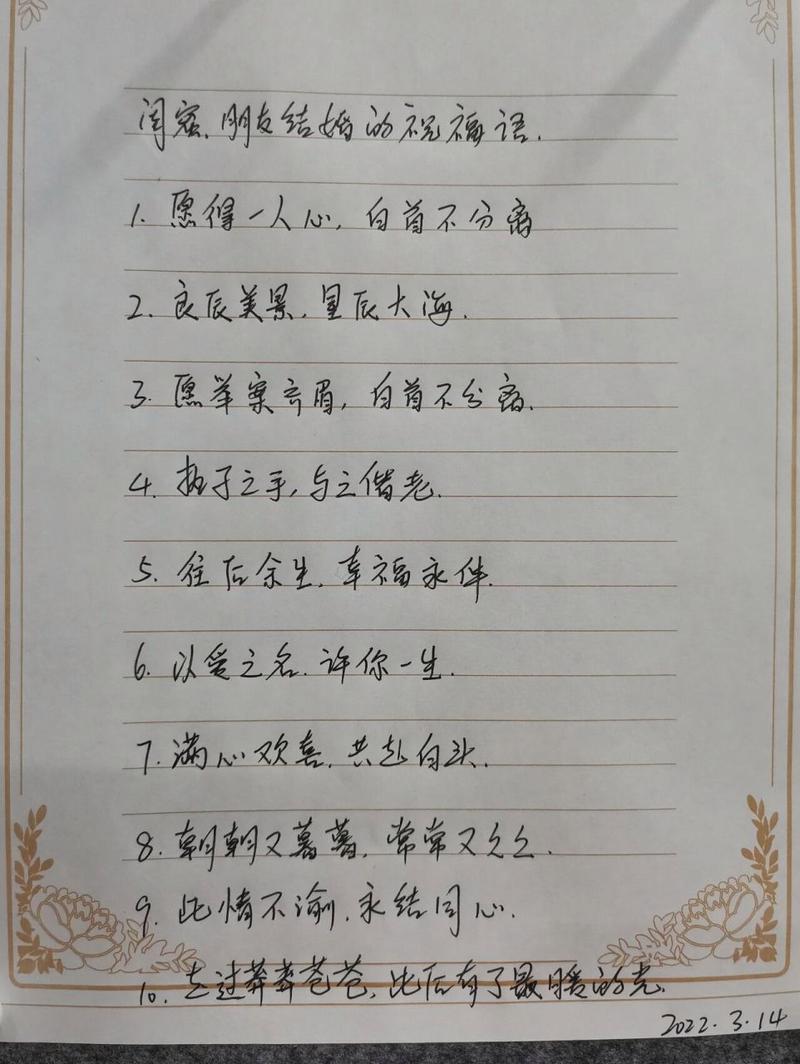 闺蜜、朋友结婚的祝福语.
1. 愿得一人心, 白首不分离
2. 良辰美景, 星辰大海.
3. 愿举案齐眉, 白首不分离.
4. 执子之手, 与之偕老.
5. 往后余生, 幸福永伴.
6. 以爱之名. 许你一生.
7. 满心欢喜, 共赴白头.
8. 朝朝又暮暮, 常常又久久.
9. 此情不渝, 永结同心.
10. 走过莽莽苍苍, 此后有了最暖的光.
2022.3.14